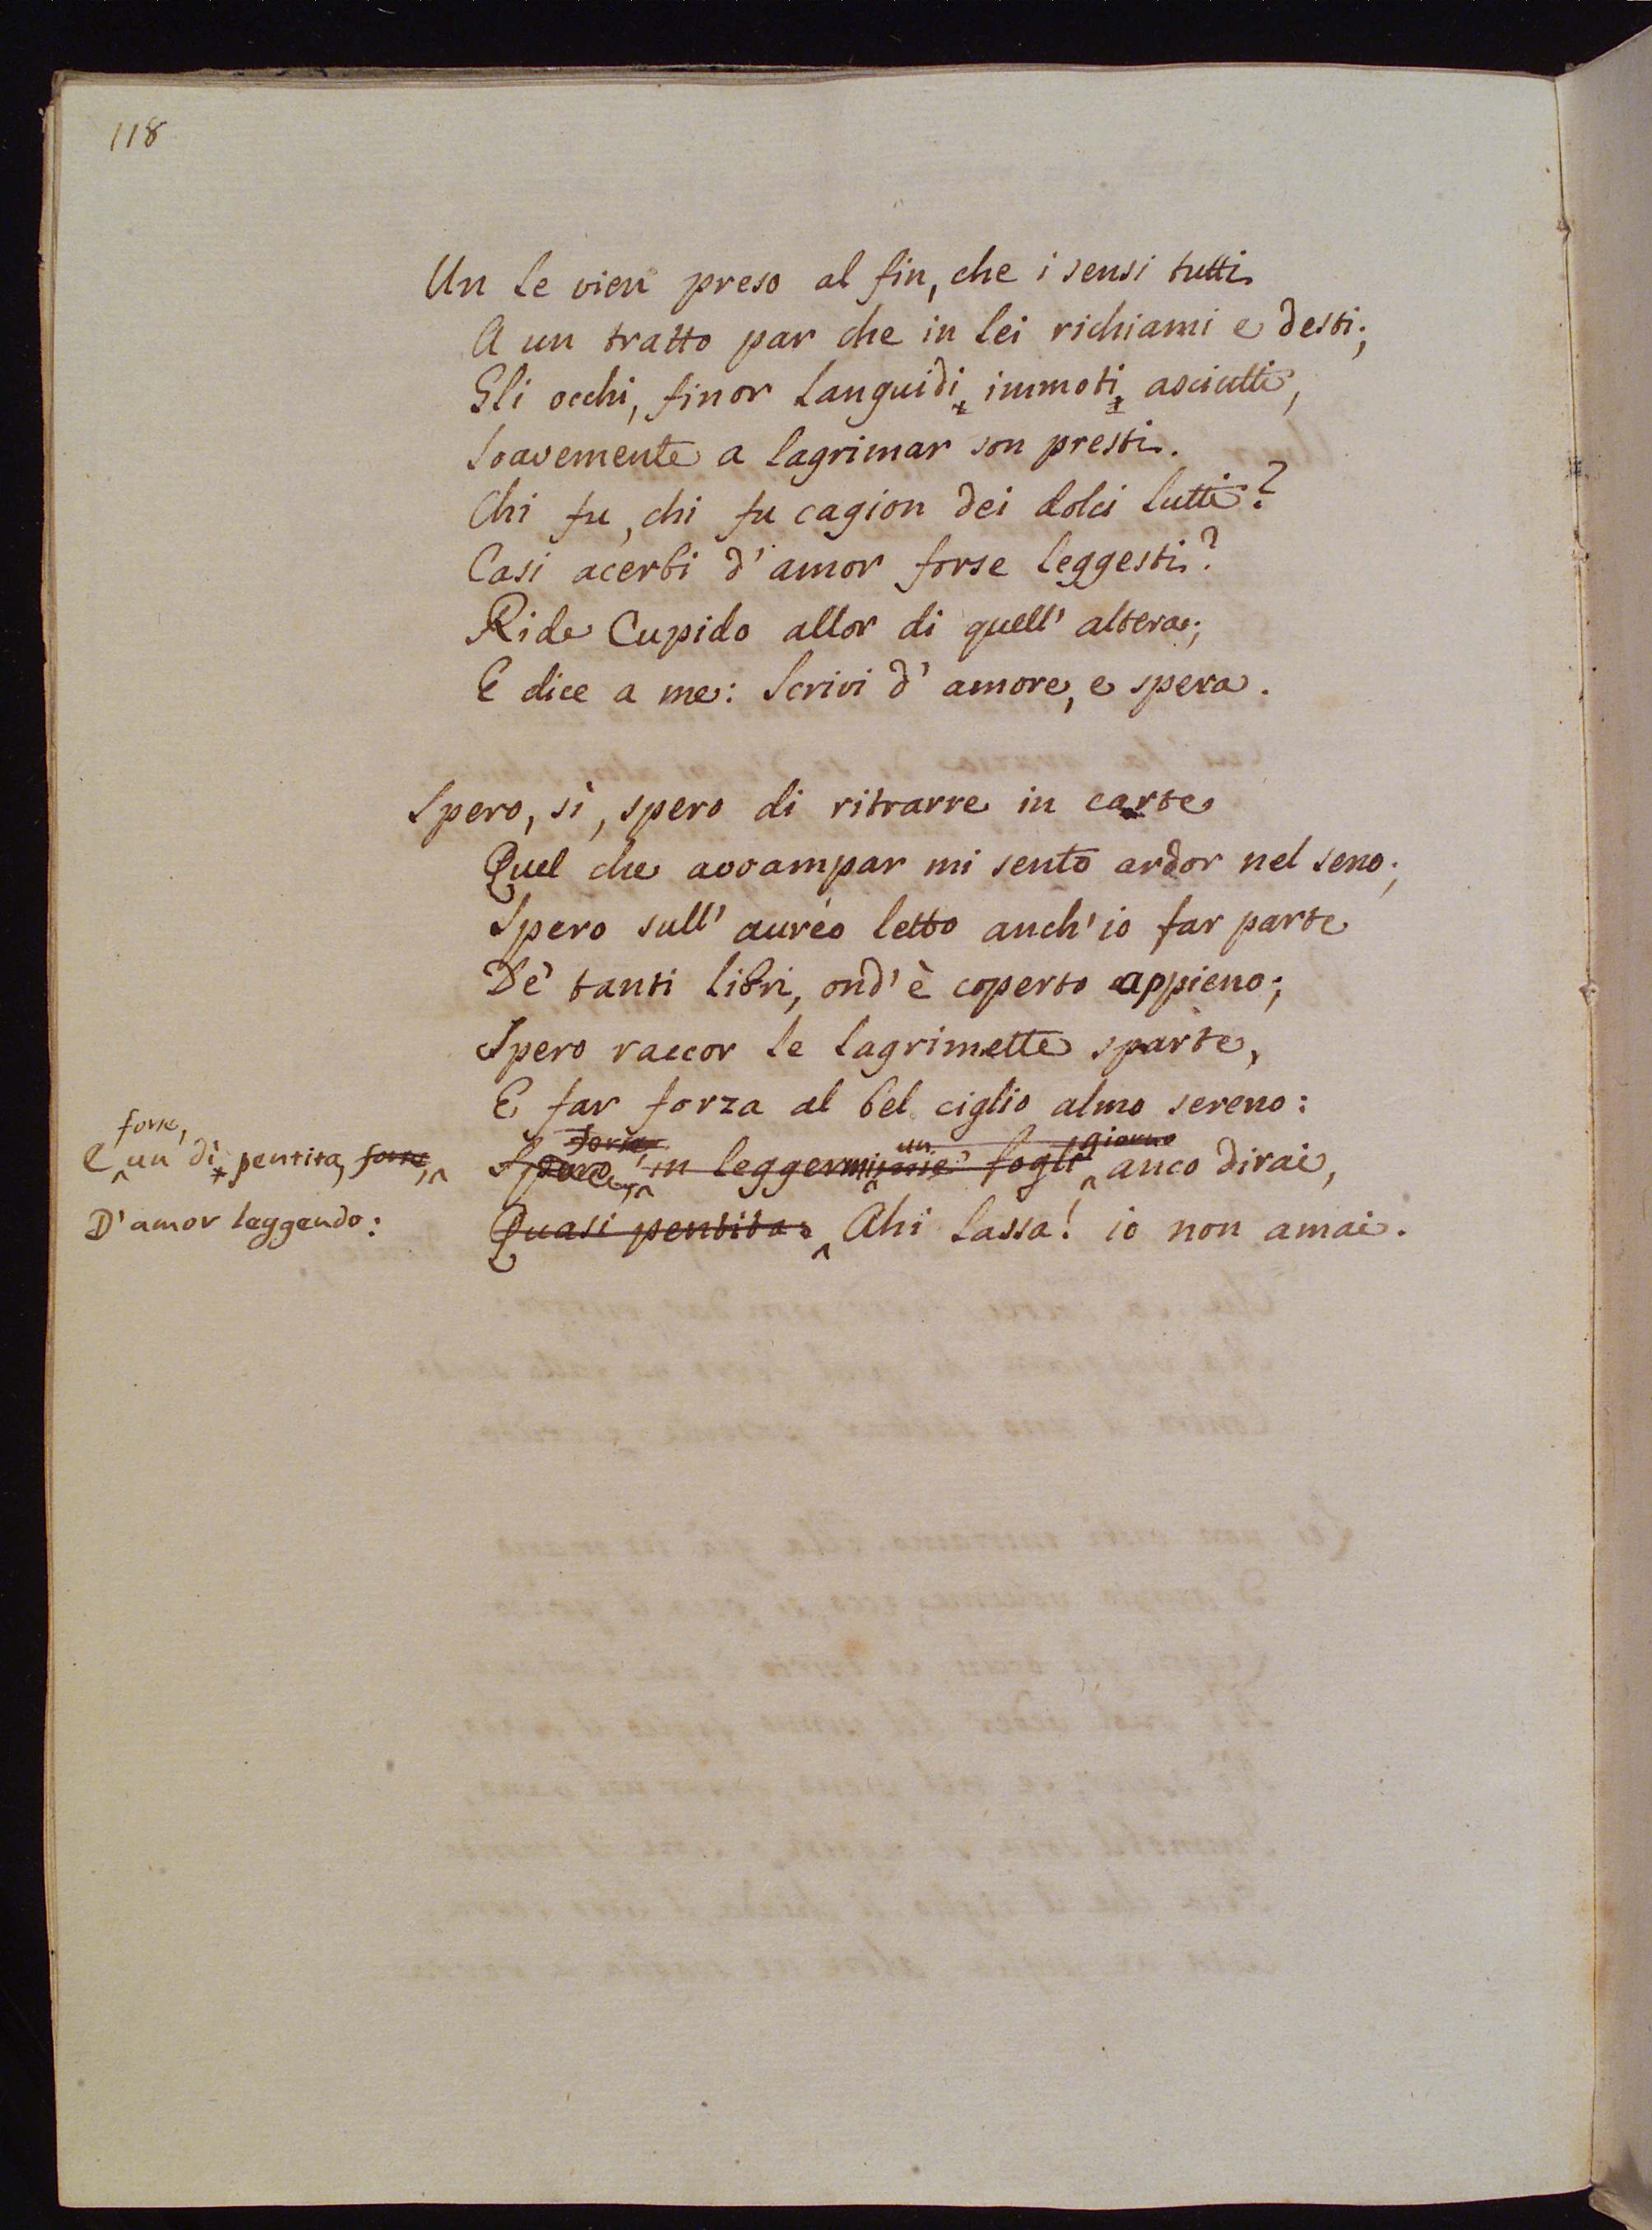 118
Un le vien preso al fin, che i sensi tutti
A un tratto par che in lei richiami e desti;
Gli occhi, finor languidi, immoti, asciutti,
Soavemente a lagrimar son presti.
Chi fu, chi fu cagion dei dolci lutti?
Casi acerbi d'amor forse leggesti?
Ride Cupido allor di quell' altera;
E dice a me: Scrivi d'amore, e spera.
Spero, sì, spero di ritrarre in carte
Quel che avvampar mi sento ardor nel seno;
Spero sull' aureo letto anch'io far parte
De' tanti libri, ond'è coperto appieno;
Spero raccor le lagrimette sparte,
E far forza al bel ciglio almo sereno:
forse,
E un dì pentita, forse,
forse, un giorno
in legger miei fogli anco dirai,
D'amor leggendo:
Quasi pentita: Ahi lassa! io non amai.